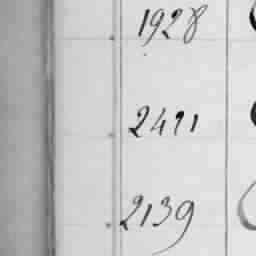 1928
2491
2139